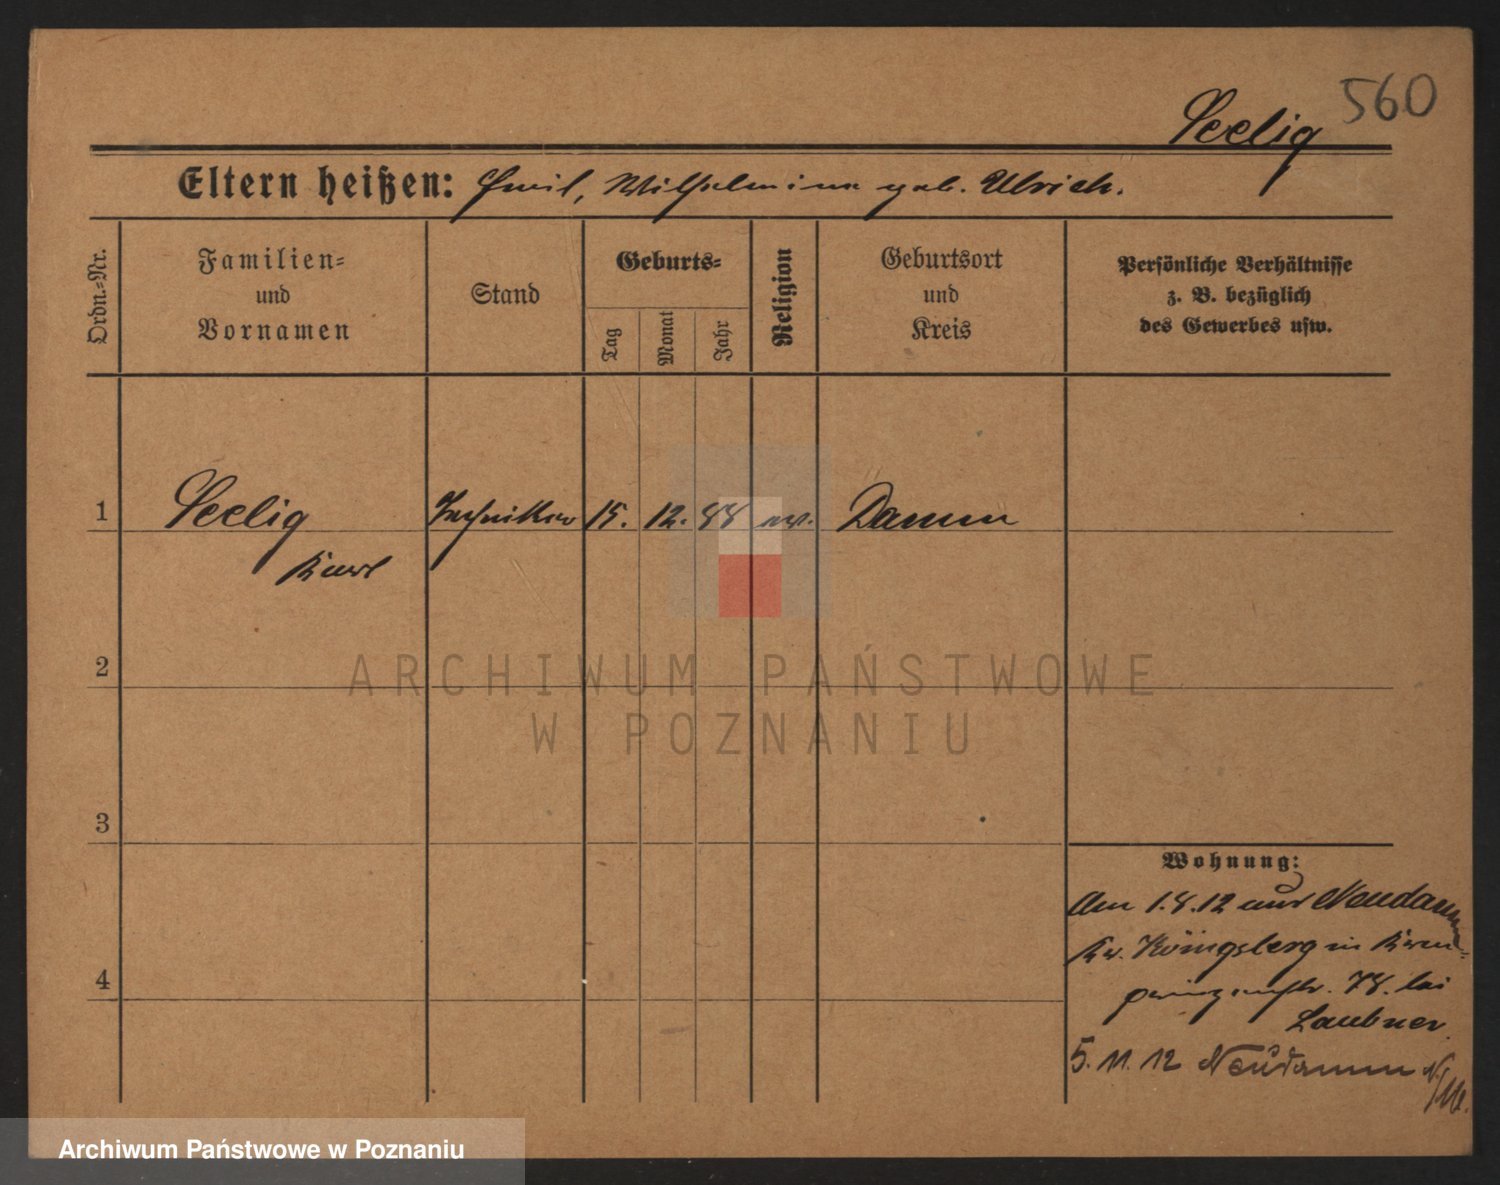 560
Seelig
Eltern heißen: Emil, Wilhelmine geb. Ulrich.
Ordn.-Nr.
Familien-
und
Vornamen
Stand
Geburts-
Tag
Monat
Jahr
Religion
Geburtsort
und
Kreis
Persönliche Verhältnisse
z. B. bezüglich
des Gewerbes usw.
1 Seelig Techniker 15. 12. 88 ev. Damm
Karl
2
ARCHIWUM PAŃSTWOWE
W POZNANIU
3
Wohnung:
Am 1.8.12 aus Neudamm
Kr. Königsberg in Kron-
prinzenstr. 78. bei
Laubner.
4
5. 11. 12 Neudamm N/M.
Archiwum Państwowe w Poznaniu